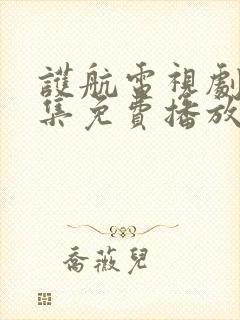 護航電視劇
集免費播放
喬薇兒